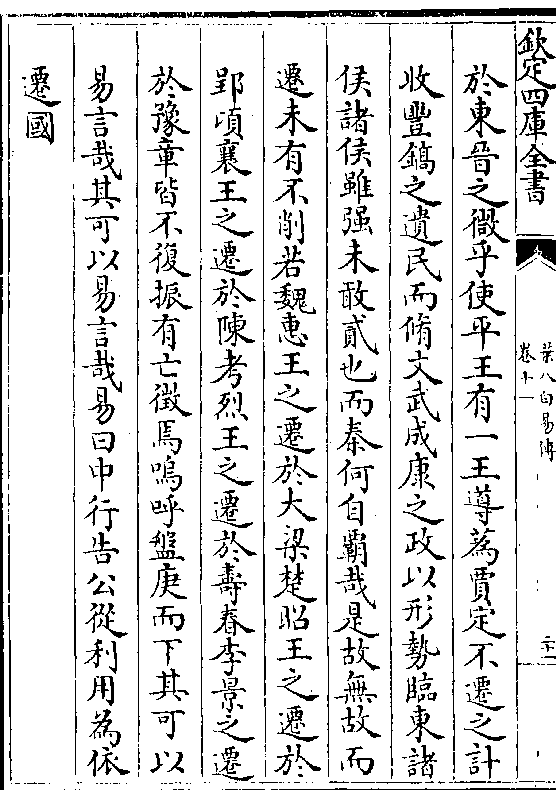 欽定四庫全書
葉八白易傳
卷十一
二十一
於東晉之微乎使平王有一王導為賈定不遷之計
收豐鎬之遺民而脩文武成康之政以形勢臨東諸
侯諸侯雖强未敢貳也而秦何自霸哉是故無故而
遷未有不削若魏惠王之遷於大梁楚昭王之遷於
郢頃襄王之遷於陳考烈王之遷於壽春李景之遷
於豫章皆不復振有亡徵焉嗚呼盤庚而下其可以
易言哉其可以易言哉易曰中行告公從利用為依
遷國